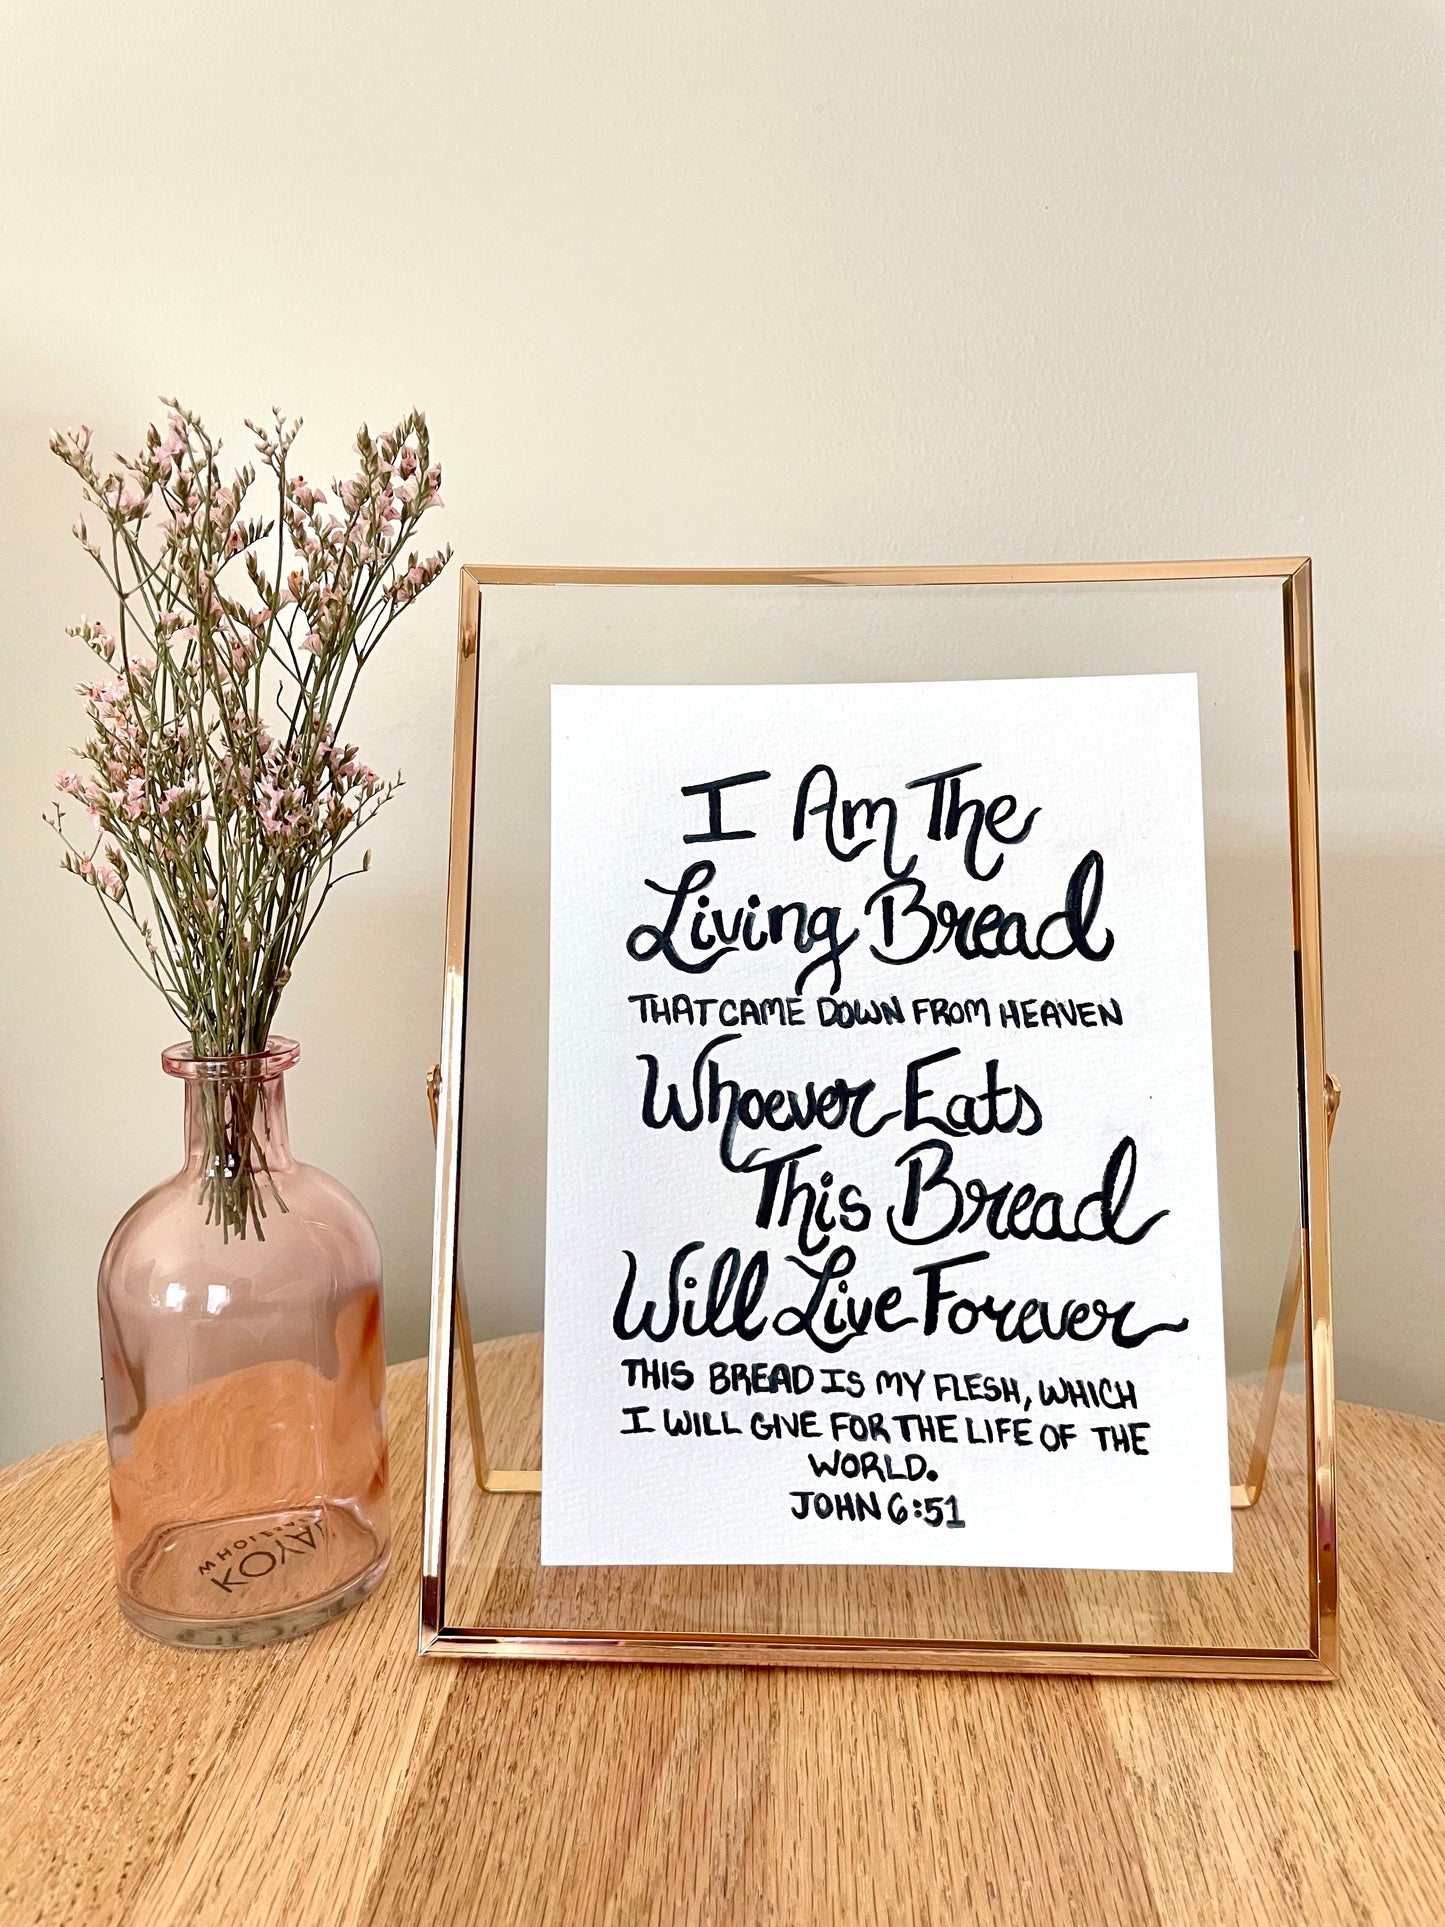 I Am The
Living Bread
THAT CAME DOWN FROM HEAVEN
Whoever Eats
This Bread
Will Live Forever
THIS BREAD IS MY FLESH, WHICH
I WILL GIVE FOR THE LIFE OF THE
WORLD.
JOHN 6:51
WHOLESALE
KOYAL